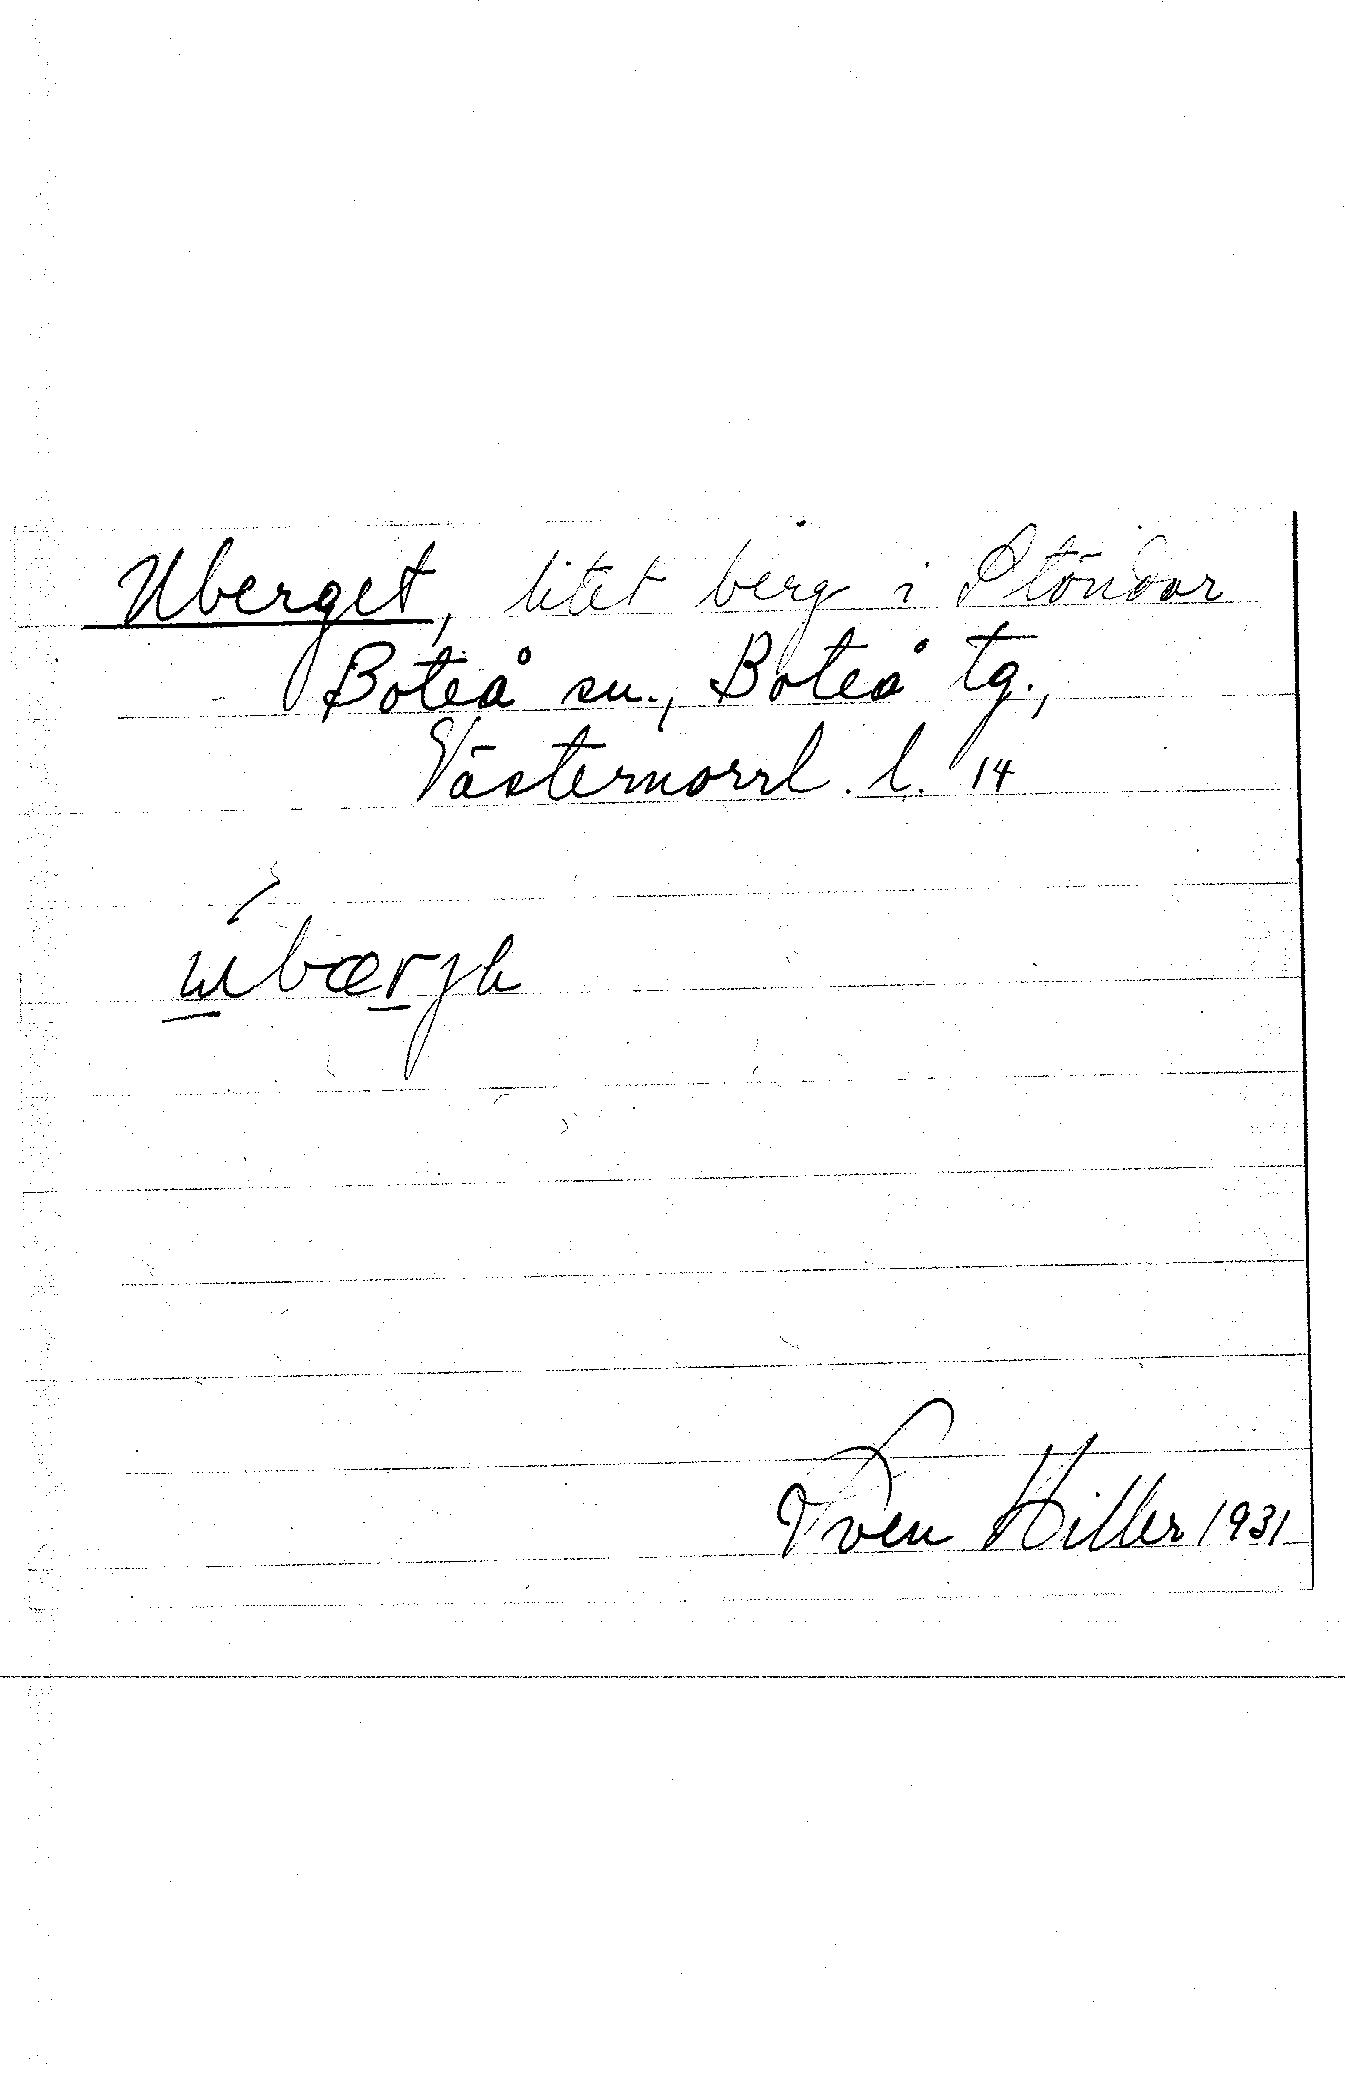 Uberget, litet berg i Ståndar
Boteå sn., Boteå tg.,
Västernorrl. l. 14
Sven Hiller 1931